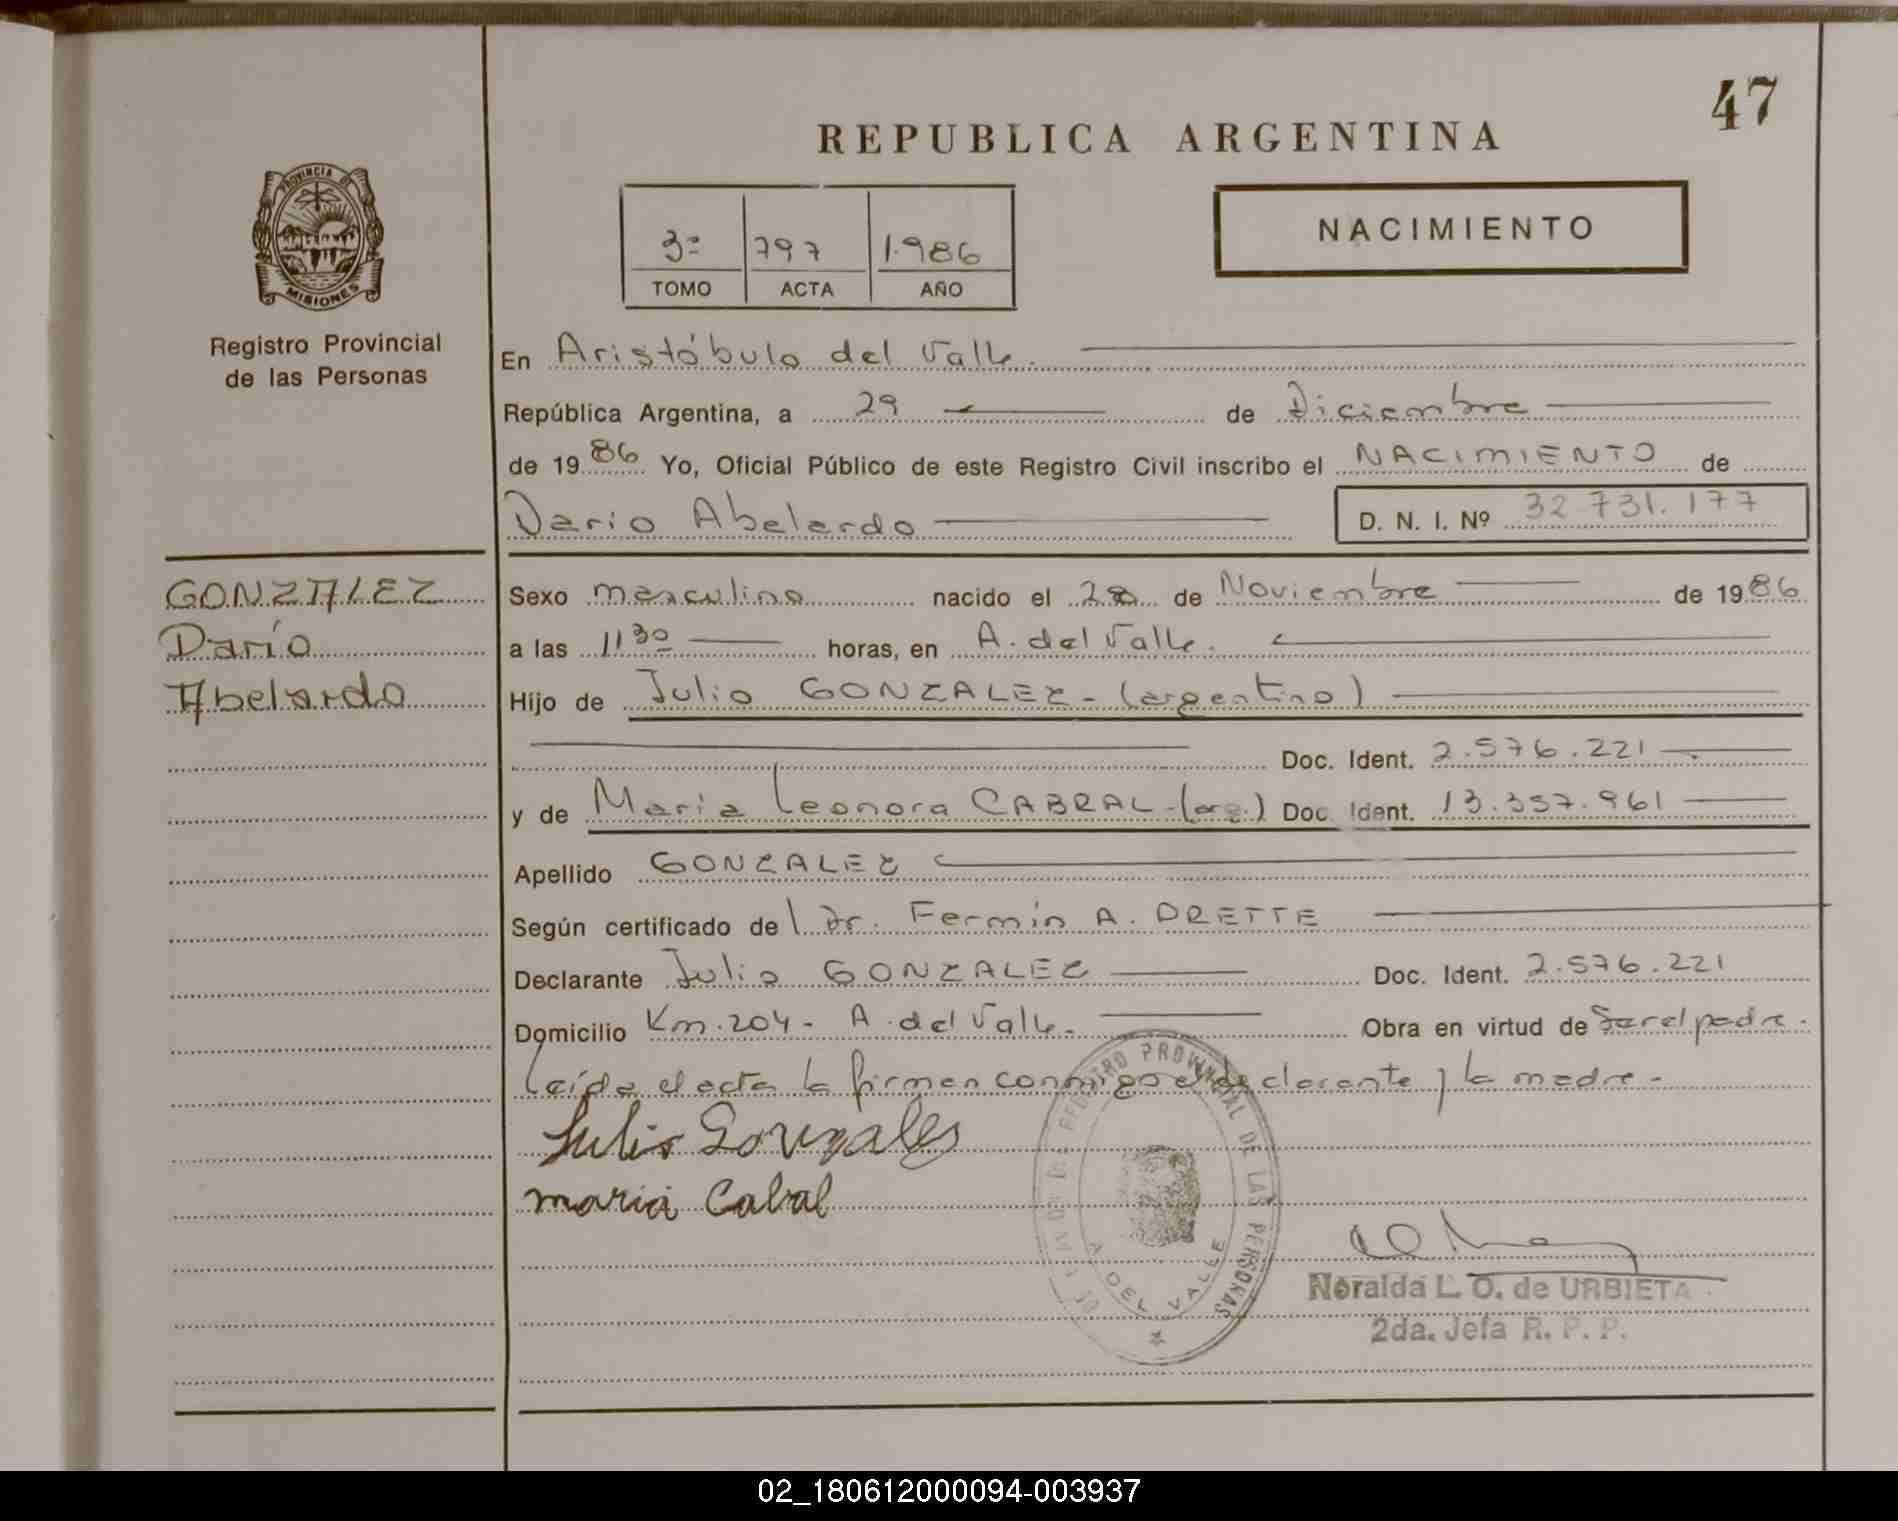 47
REPUBLICA ARGENTINA
PROVINCIA DE
MISIONES
Registro Provincial
de las Personas
3º 797 1.986
TOMO ACTA AÑO
NACIMIENTO
En Aristóbulo del Valle.
República Argentina, a 29 de Diciembre
de 1986 Yo, Oficial Público de este Registro Civil inscribo el NACIMIENTO de
Dario Abelardo D. N. I. Nº 32.731.177
GONZALEZ
Darío
Abelardo
Sexo masculino nacido el 28 de Noviembre de 1986
a las 11 30 horas, en A. del Valle.
Hijo de Julio GONZALEZ - (argentino)
Doc. Ident. 2.576.221
y de Maria Leonora CABRAL - (arg.) Doc. Ident. 13.357.961
Apellido GONZALEZ
Según certificado del Dr. Fermín A. ORETTE
Declarante Julio GONZALEZ Doc. Ident. 2.576.221
Domicilio Km. 204 - A. del Valle. Obra en virtud de Ser el padre.
Leída el acta la firman conmigo el declarante y la madre.
Julio Gonzales
maria Cabal
REGISTRO PROVINCIAL DE LAS PERSONAS
A. DEL VALLE
Noralda L. O. de URBIETA
2da. Jefa R. P. P.
02_180612000094-003937